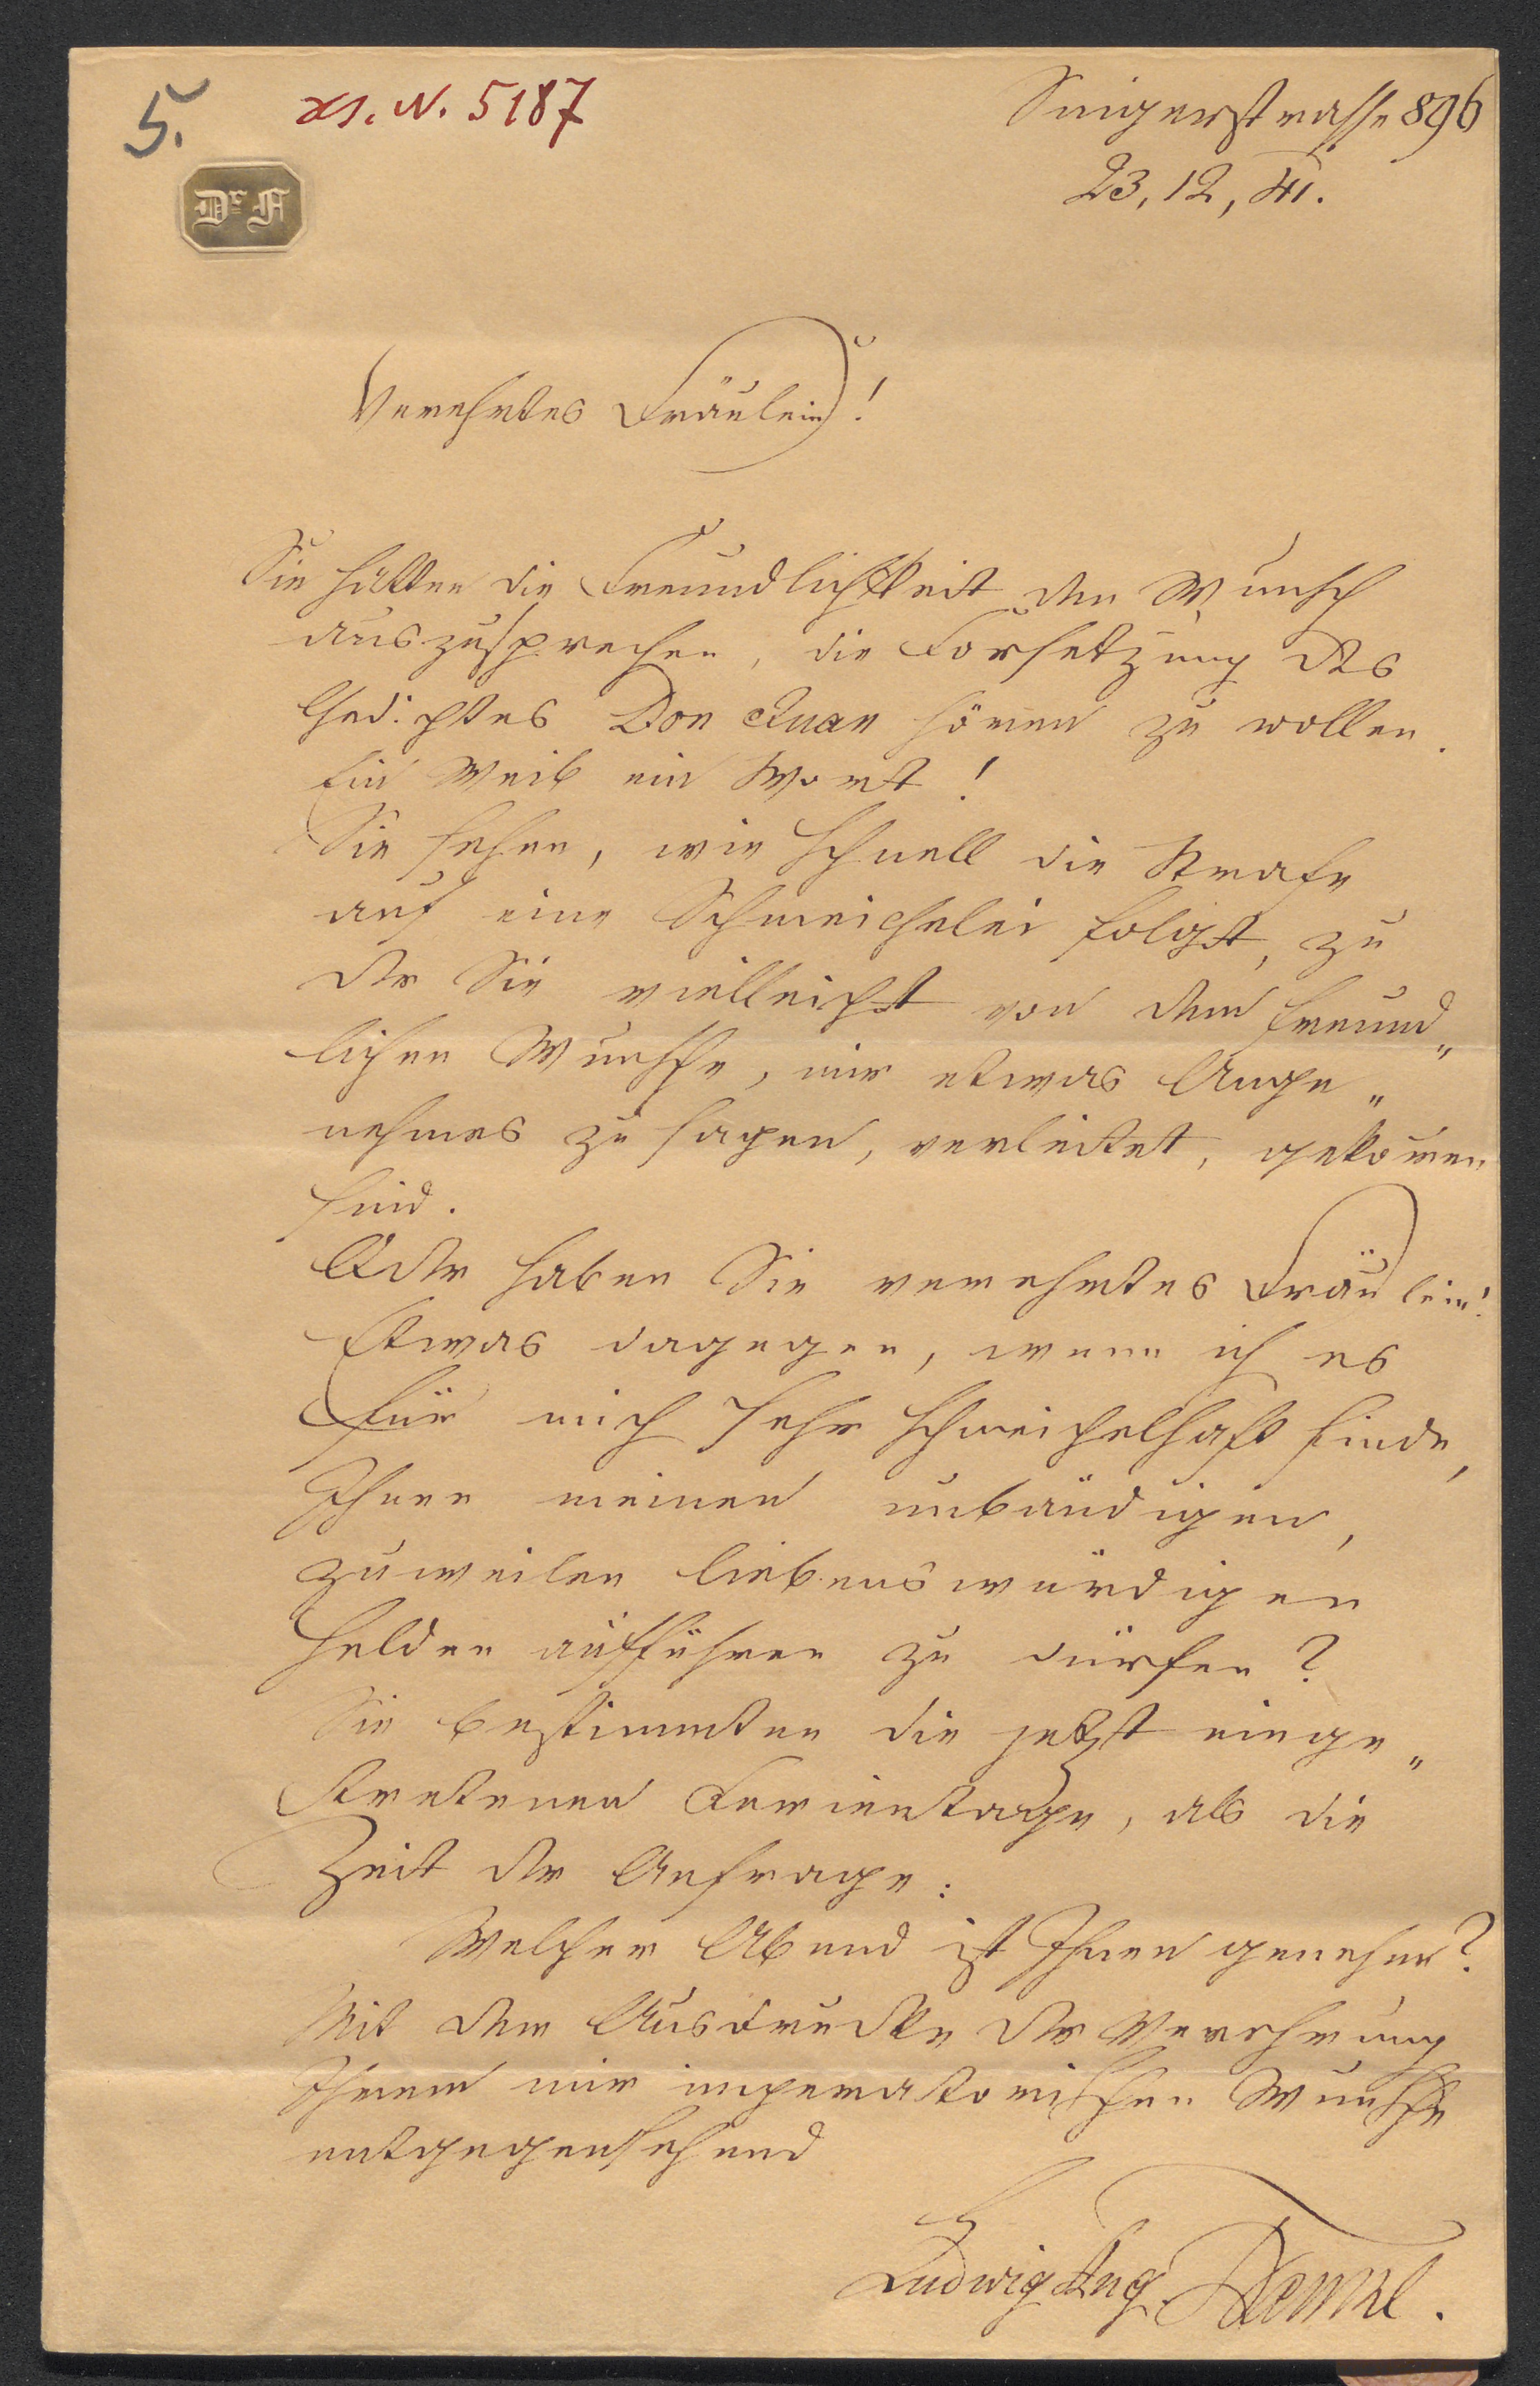 5.
H. N. 5187
Singerstrasse 896
23, 12, 41.
Dr F
Verehrtes Fräulein!
Sie hatten die Freundlichkeit den Wunsch
auszusprechen, die Forsetzung des
Gedichtes Don Juan hören zu wollen.
Ein Weib ein Wort!
Sie sehen, wie schnell die Strafe
auf eine Schmeichelei folgt, zu
der Sie vielleicht von dem freund„
lichen Wunsche, mir etwas Ange„
nehmes zu sagen, verleitet,
sind.
Oder haben Sie verehrtes Fräulein!
Etwas dagegen, wenn ich es
für mich sehr schmeichelhaft finde,
Ihnen meinen unbändigen,
zuweilen liebenswürdigen
Helden aufführen zu dürfen?
Sie bestimmten die jetzt einge„
tretenen Ferientage, als die
Zeit der Anfrage:
Welcher Abend ist Ihnen genehm?
Mit dem Ausdrucke der Verehrung
Ihrem mir imperatorischen Wunsche
entgegensehend
Ludwig Aug. Frankl.